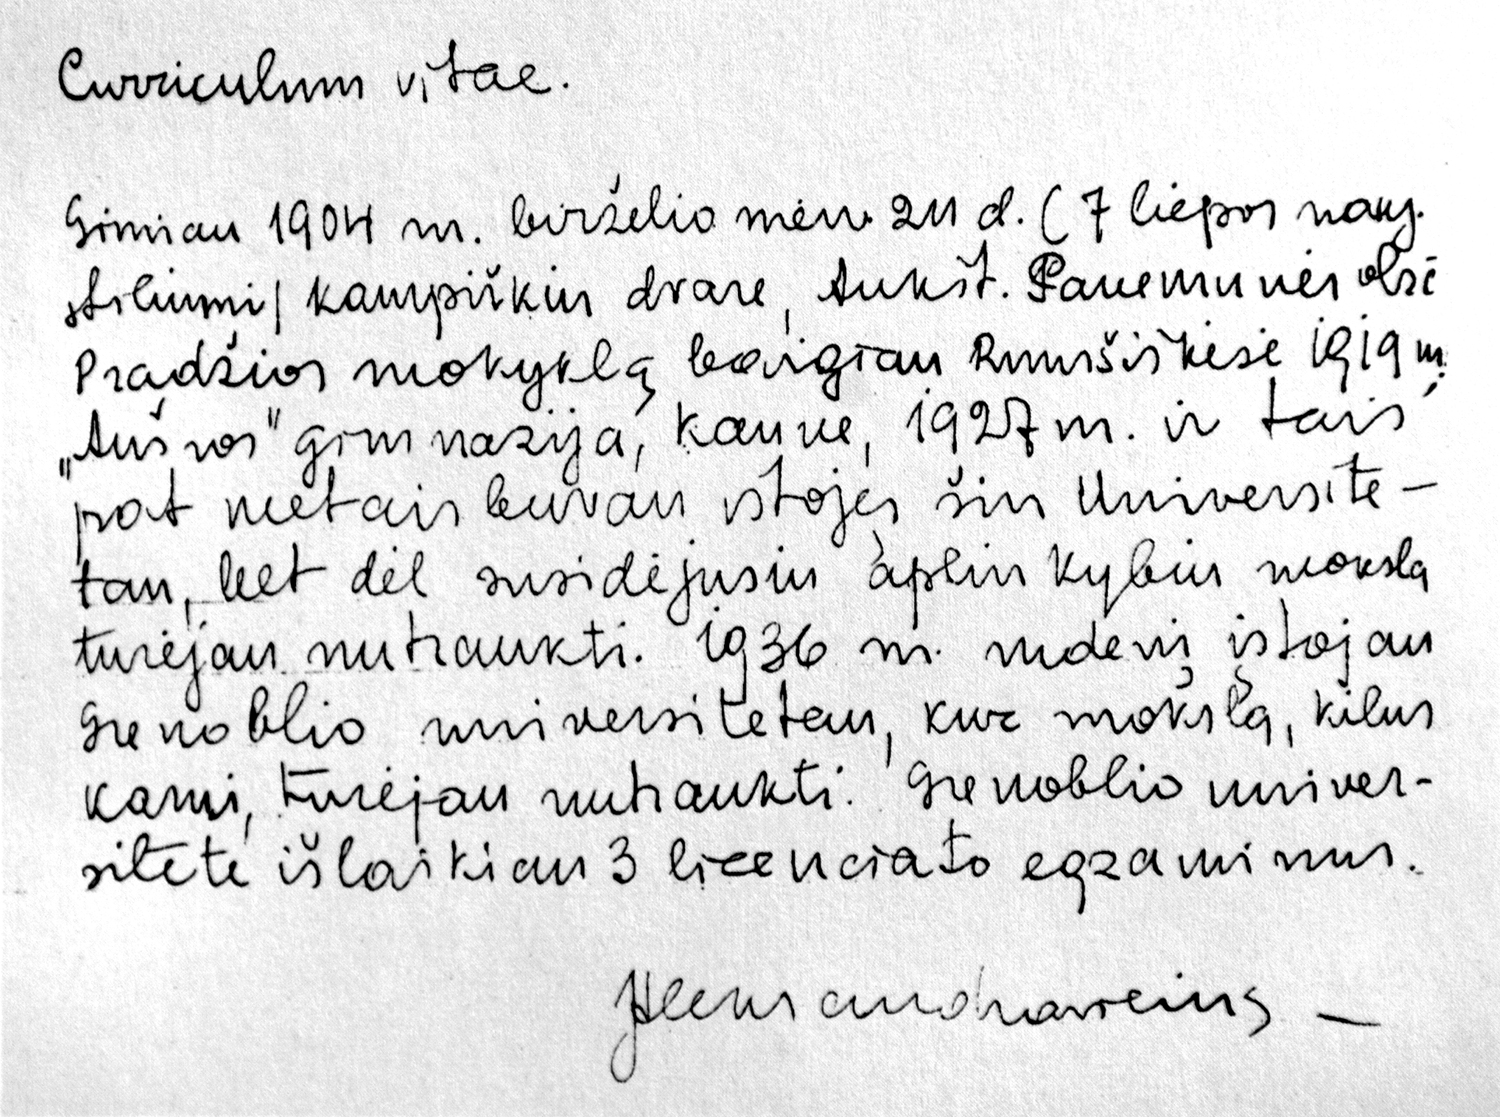 Curriculum vitae.
Gimiau 1904 m. birželio mėn. 24 d. (7 liepos nauj.
stiliumi) Kampiškių dvare, Aukšt. Panemunės vlsč
Pradžios mokyklą baigiau Rumšiškėse 1919 m.;
„Aušros" gimnaziją, Kaune, 1927 m. ir tais
pat metais buvau įstojęs šin Universite-
tan, bet dėl susidėjusių aplinkybių mokslą
turėjau nutraukti. 1936 m. rudenį įstojau
Grenoblio universitetan, kur mokslą, kilus
karui, turėjau nutraukti. Grenoblio univer-
sitete išlaikiau 3 licenciato egzaminus.